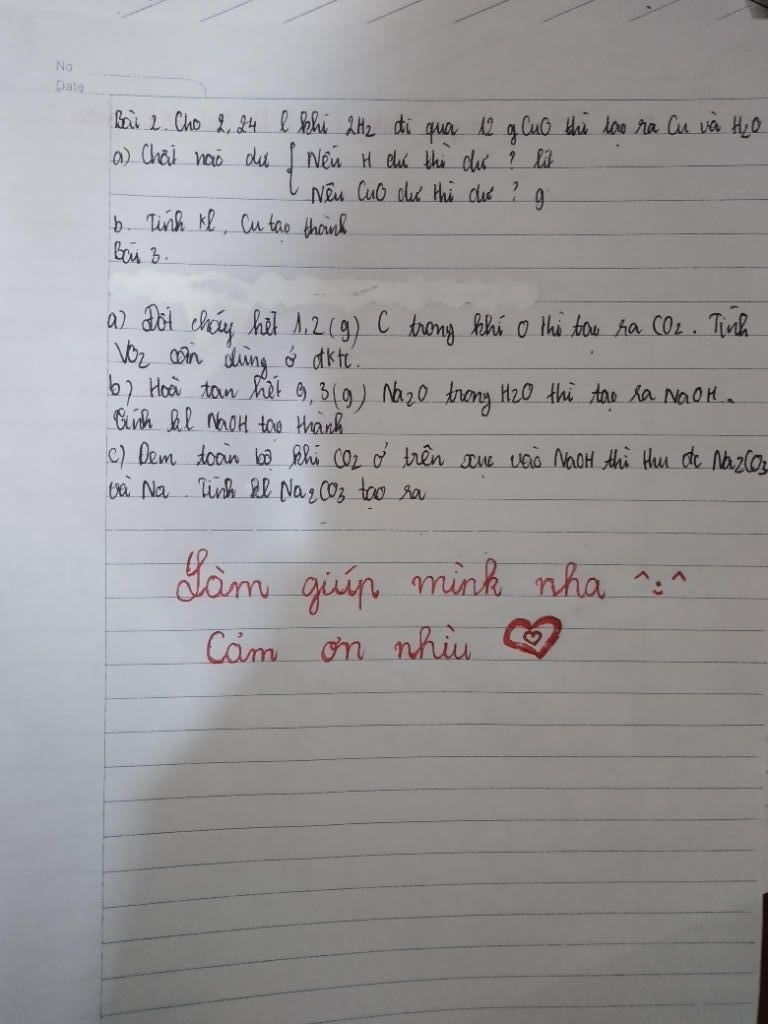 No
Date
Bài 2. Cho 2,24 l khí 2H2 đi qua 12 g CuO thì tạo ra Cu và H2O
a) Chất nào dư { Nếu H dư thì dư ? lít
Nếu CuO dư thì dư ? g
b. Tính kl, Cu tạo thành
Bài 3.
a) Đốt cháy hết 1,2 (g) C trong khí O thì tạo ra CO2. Tính
VO2 cần dùng ở đktc.
b) Hoà tan hết 9,3 (g) Na2O trong H2O thì tạo ra NaOH.
Tính kl NaOH tạo thành
c) Đem toàn bộ khí CO2 ở trên sục vào NaOH thì thu đc Na2CO3
và Na. Tính kl Na2CO3 tạo ra
Làm giúp mình nha ^:^
Cảm ơn nhìu